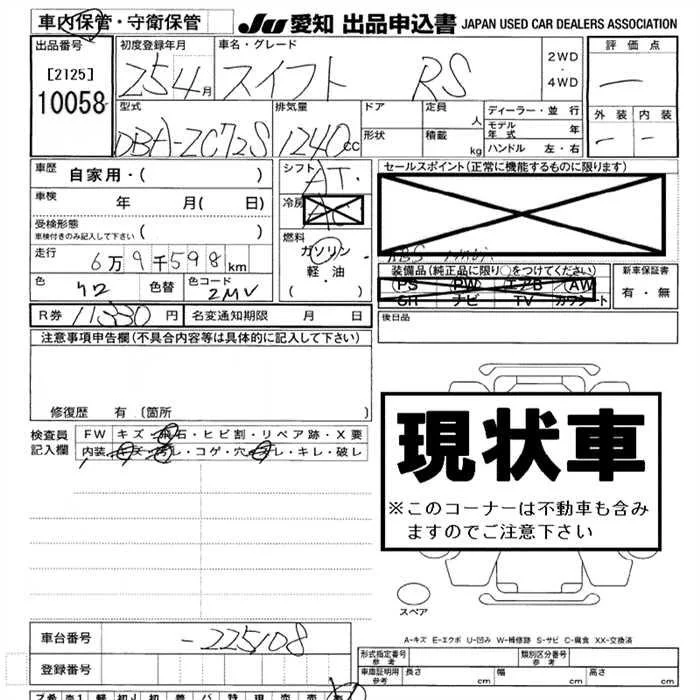 車内保管・守衛保管 JU 愛知 出品申込書 JAPAN USED CAR DEALERS ASSOCIATION
出品番号 初度登録年月 車名・グレード 2WD ・ 4WD 評価点
[2125]
10058 25 4月 スイフト RS
型式 排気量 ドア 定員 人 ディーラー・並行 外装 内装
モデル年式 年
DBA-ZC72S 1240cc 形状 積載 kg ハンドル 左・右
車歴 自家用・( ) シフト AT セールスポイント(正常に機能するものに限ります)
車検 年 月( 日) 冷房
受検形態 ( )
車検付きのみ記入して下さい
燃料
走行 6万9千598km ガソリン
軽・油
( ・ )
装備品(純正品に限り○をつけてください) 新車保証書
色 クロ 色替 色コード ZMV PS PW エアB AW 有・無
SR ナビ TV カワシート
R券 11330円 名変通知期限 月 日 後日品
注意事項申告欄(不具合内容等は具体的に記入して下さい)
修復歴 有(箇所 )
現状車
※このコーナーは不動車も含みますのでご注意下さい
検査員記入欄 FW キズ・飛石・ヒビ割・リペア跡・X要
内装、キズ・汚レ・コゲ・穴・スレ・キレ・破レ
スペア
A-キズ E-エクボ U-凹み W-補修跡 S-サビ C-腐食 XX-交換済
車台番号 -225108
登録番号
形式指定番号 参考 類別区分番号 参考
車庫証明用 参考 長さ cm 幅 cm 高さ cm